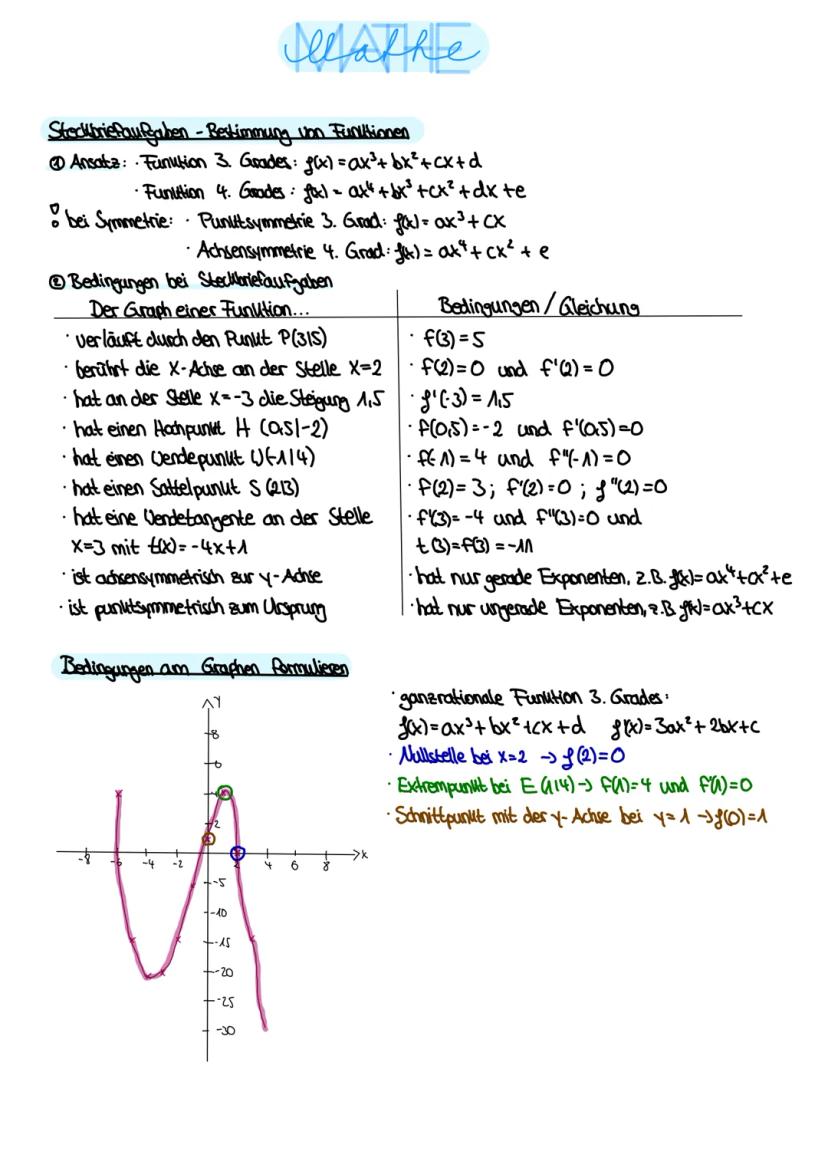 MATHE
Mathe
Steckbriefaufgaben - Bestimmung von Funktionen
① Ansatz: · Funktion 3. Grades: f(x) = ax³ + bx² + cx + d
· Funktion 4. Grades: f(x) = ax⁴ + bx³ + cx² + dx + e
! bei Symmetrie: · Punktsymmetrie 3. Grad: f(x) = ax³ + cx
· Achsensymmetrie 4. Grad: f(x) = ax⁴ + cx² + e
② Bedingungen bei Steckbriefaufgaben
Der Graph einer Funktion... Bedingungen / Gleichung
· verläuft durch den Punkt P(3|5) · f(3) = 5
· berührt die x-Achse an der Stelle x=2 · f(2)=0 und f'(2) = 0
· hat an der Stelle x=-3 die Steigung 1,5 · f'(-3) = 1,5
· hat einen Hochpunkt H (0,5|-2) · f(0,5) = -2 und f'(0,5)=0
· hat einen Wendepunkt W(-1|4) · f(-1) = 4 und f''(-1) = 0
· hat einen Sattelpunkt S (2|3) · f(2) = 3; f'(2) = 0; f''(2) = 0
· hat eine Wendetangente an der Stelle · f'(3) = -4 und f''(3)=0 und
x=3 mit t(x) = -4x+1 t(3)=f(3) = -11
· ist achsensymmetrisch zur y-Achse · hat nur gerade Exponenten, z.B. f(x)= ax⁴+cx²+e
· ist punktsymmetrisch zum Ursprung · hat nur ungerade Exponenten, z.B f(x)=ax³+cx
Bedingungen am Graphen formulieren
· ganzrationale Funktion 3. Grades:
f(x) = ax³ + bx² + cx + d f'(x) = 3ax² + 2bx + c
· Nullstelle bei x=2 → f(2)=0
· Extrempunkt bei E (1|4) → f(1)=4 und f'(1)=0
· Schnittpunkt mit der y-Achse bei y=1 → f(0)=1
y
8
6
2
-8 -6 -4 -2 2 4 6 8 x
-5
-10
-15
-20
-25
-30